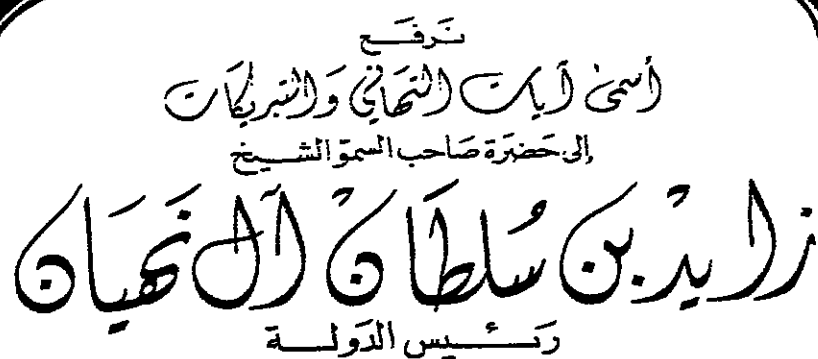 نرفع
أسمى آيات التهاني والتبريكات
إلى حضرة صاحب السمو الشيخ
زايد بن سلطان آل نهيان
رئيس الدولة